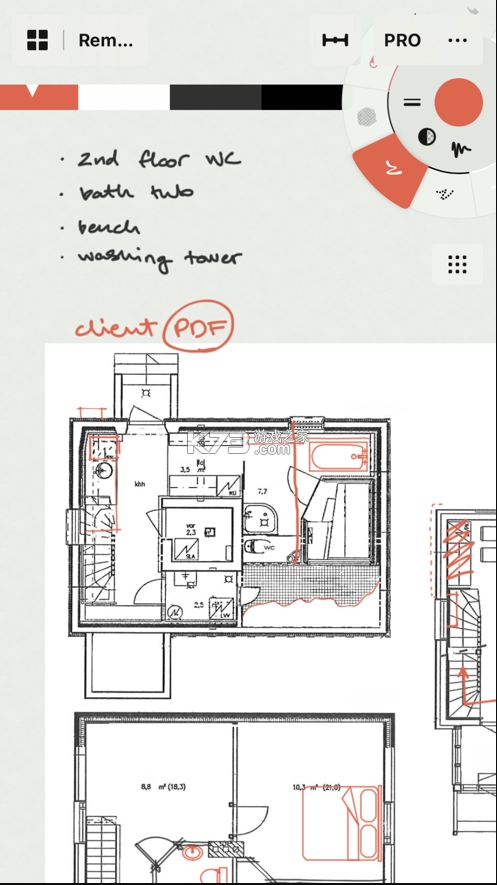 Rem...
PRO
2nd floor WC
bath tub
bench
washing tower
client PDF
K73 游戏之家
.com
3,5 m²
khh
KU
7,7
var
2,3
SLA
WC
2,5
LVV
8,8 m² (18,3)
10,3 m² (21,0)